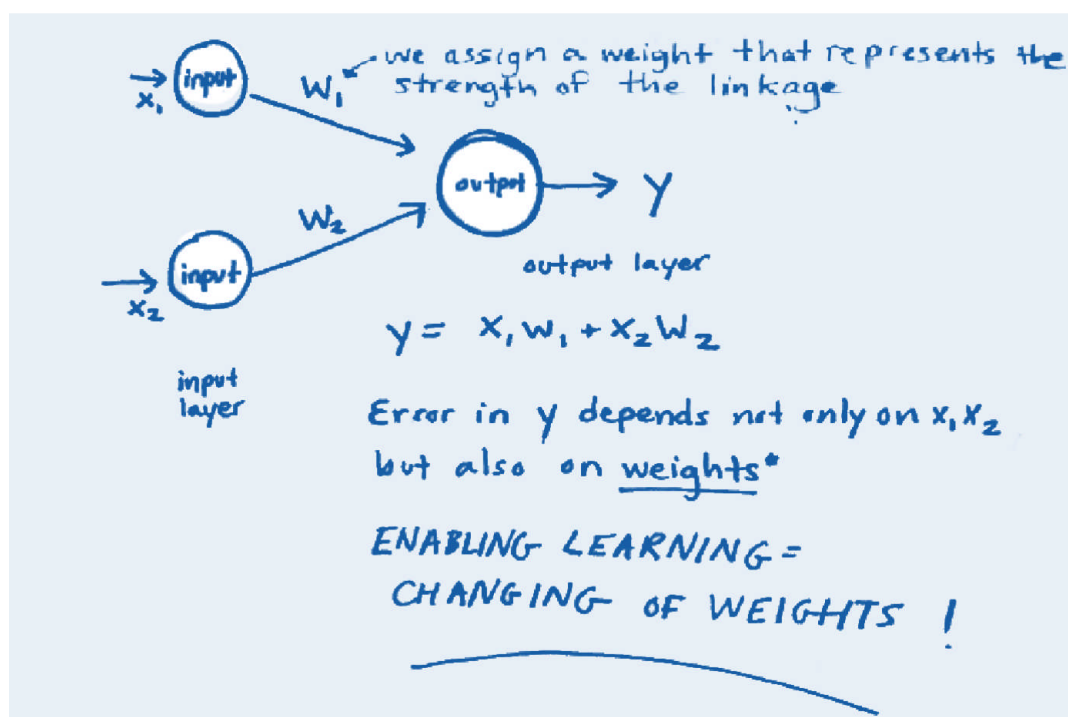 we assign a weight that represents the
strength of the linkage
input
x₁
W₁
output
y
W₂
input
x₂
output layer
y = x₁w₁ + x₂w₂
input
layer
Error in y depends not only on x₁x₂
but also on weights*
ENABLING LEARNING =
CHANGING OF WEIGHTS !